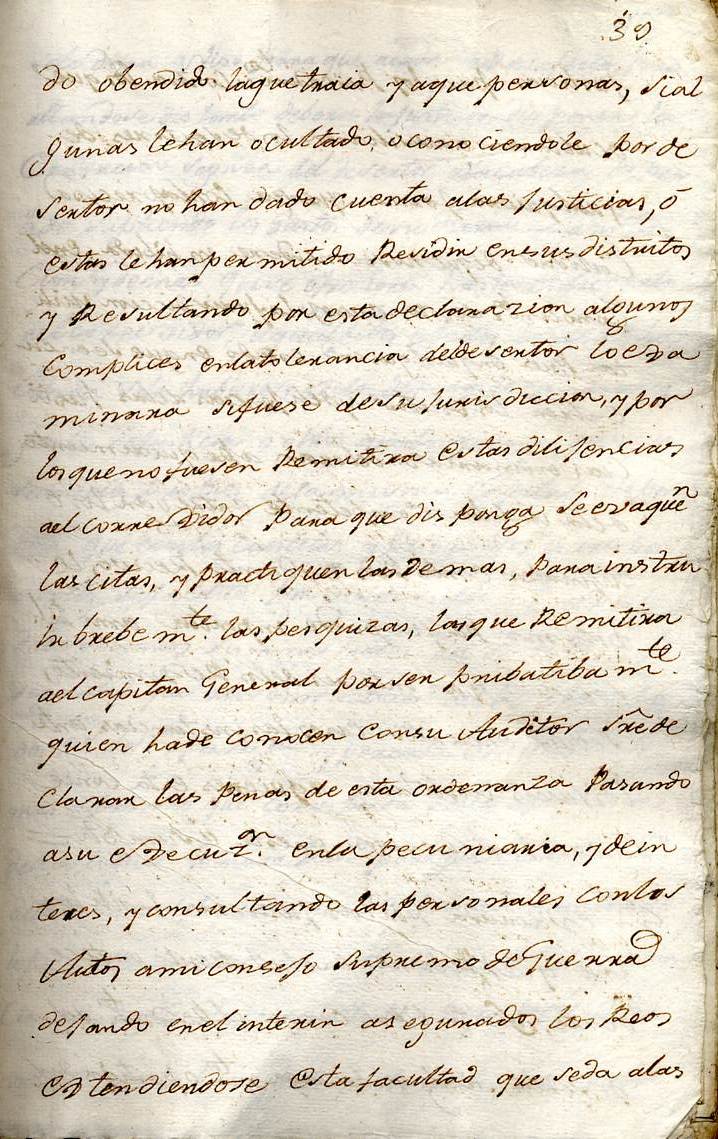 39
do obendido la que traia y aque personas, si al
gunas le han ocultado, o conociendole por de
sertor no han dado cuenta alas Justicias, ó
estas le han permitido Residir en sus distritos
y Resultando por esta declarazion algunos
Complices en la tolerancia del desertor lo exa
minara si fuese de su Jurisdiccion, y por
los que no fuesen Remitira estas dilijencias
ael Correxidor para que disponga se evaquẽ
las citas, y practiquen las demas, para instru
ir brebemte. las pesquizas, las que Remitira
ael capitan General por ser pribatibamte.
quien hade conocer con su Auditor sr̃e de
clarar las penas de esta ordenanza Pasando
a su execuzon. en la pecuniaria, y de in
teres, y consultando las personales con los
Autos ami consejo Supremo de Guerra
dejando en el interin asegurados los Reos
extendiendose esta facultad que seda alas